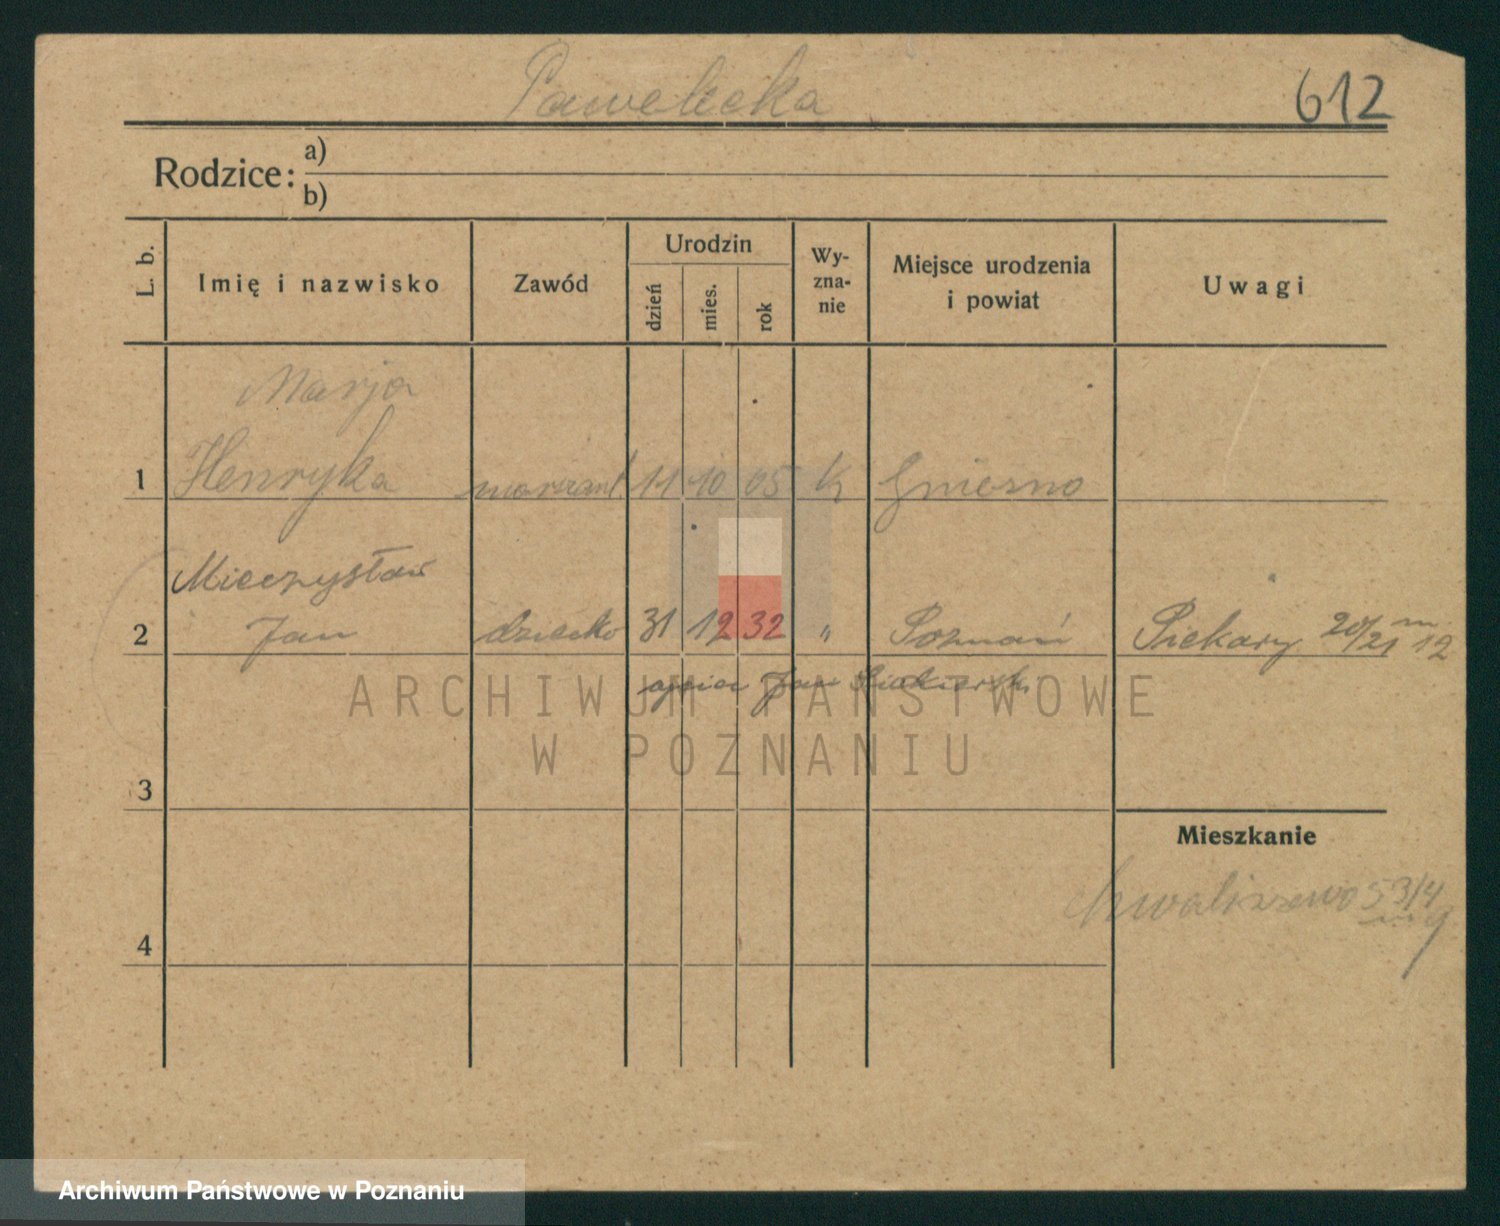 Pawelicka 612
Rodzice: a)
b)
L. b. Imię i nazwisko Zawód Urodzin dzień mies. rok Wy-zna-nie Miejsce urodzenia i powiat Uwagi
Marja
1 Henryka 11 10 05 k Gniezno
Mieczysław
2 Jan dziecko 31 12 32 " Poznań Piekary 20/21 12
Jan
ARCHIWUM PAŃSTWOWE
W POZNANIU
3
Mieszkanie
Chwaliszewo 53/4
4
Archiwum Państwowe w Poznaniu